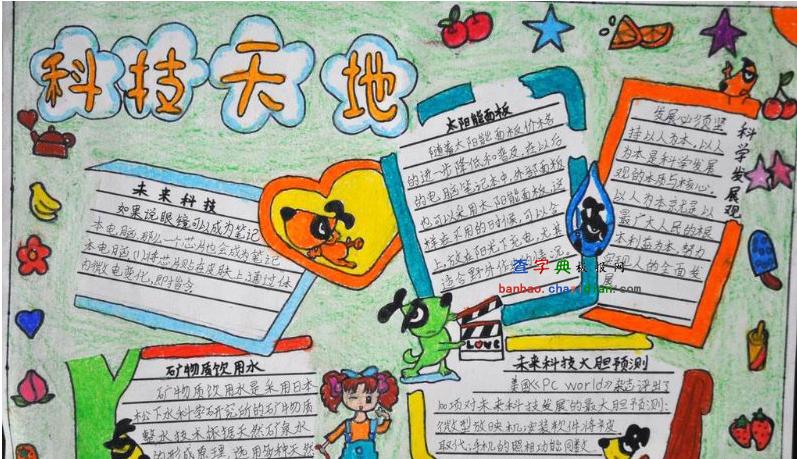 科技天地
未来科技
如果说眼镜可以成为笔记
本电脑,那么一个芯片也会成为笔记
本电脑。将芯片贴在皮肤上,通过体
内微电变化,即指含
太阳能面板
随着太阳能面板价格
的进一步降低和普及,在以后
的电脑笔记本中,外部面板
也可以采用太阳能面板,这
样在不用的时候,可以合
上,放在阳光下充电,尤其
适合野外作
科学发展观
发展必须坚
持以人为本,以人
为本是科学发展
观的本质与核心。
以人为本就是以
最广大人民的根
本利益为本,努力
实现人的全面发
展
查字典板报网
banbao.chazidian.com
矿物质饮用水
矿物质饮用水是采用日本
松下水科学研究所的矿物质
整水技术依据天然矿泉水
的形成原理,选用各种天然
LOVE
未来科技大胆预测
美国《PC world》杂志评出了
100项对未来科技发展的最大胆预测:
微型放映机;安装软件将被
取代;手机的照相功能同数